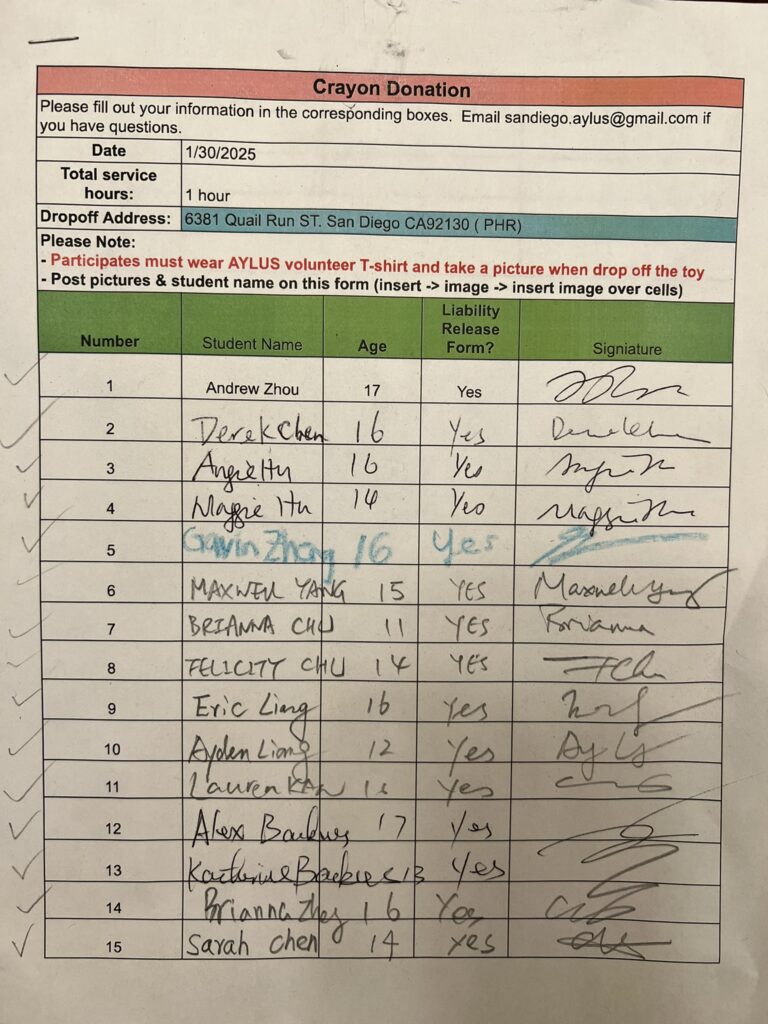 Crayon Donation
Please fill out your information in the corresponding boxes. Email sandiego.aylus@gmail.com if
you have questions.
Date 1/30/2025
Total service
hours: 1 hour
Dropoff Address: 6381 Quail Run ST. San Diego CA92130 ( PHR)
Please Note:
- Participates must wear AYLUS volunteer T-shirt and take a picture when drop off the toy
- Post pictures & student name on this form (insert -> image -> insert image over cells)
Number Student Name Age Liability Release Form? Signiature
1 Andrew Zhou 17 Yes
2 Derek Chen 16 Yes
3 Angie Hu 16 Yes
4 Maggie Hu 14 Yes Maggie Hu
5 Gavin Zhang 16 Yes
6 MAXWELL YANG 15 YES Maxwell Yang
7 BRIANNA CHU 11 YES Brianna
8 FELICITY CHU 14 YES FChu
9 Eric Liang 16 Yes
10 Ayden Liang 12 Yes Ay Ly
11 Lauren KAN Yes
12 Alex 17 Yes
13 Katherine 13 Yes
14 Brianna 16 Yes
15 Sarah Chen 14 yes